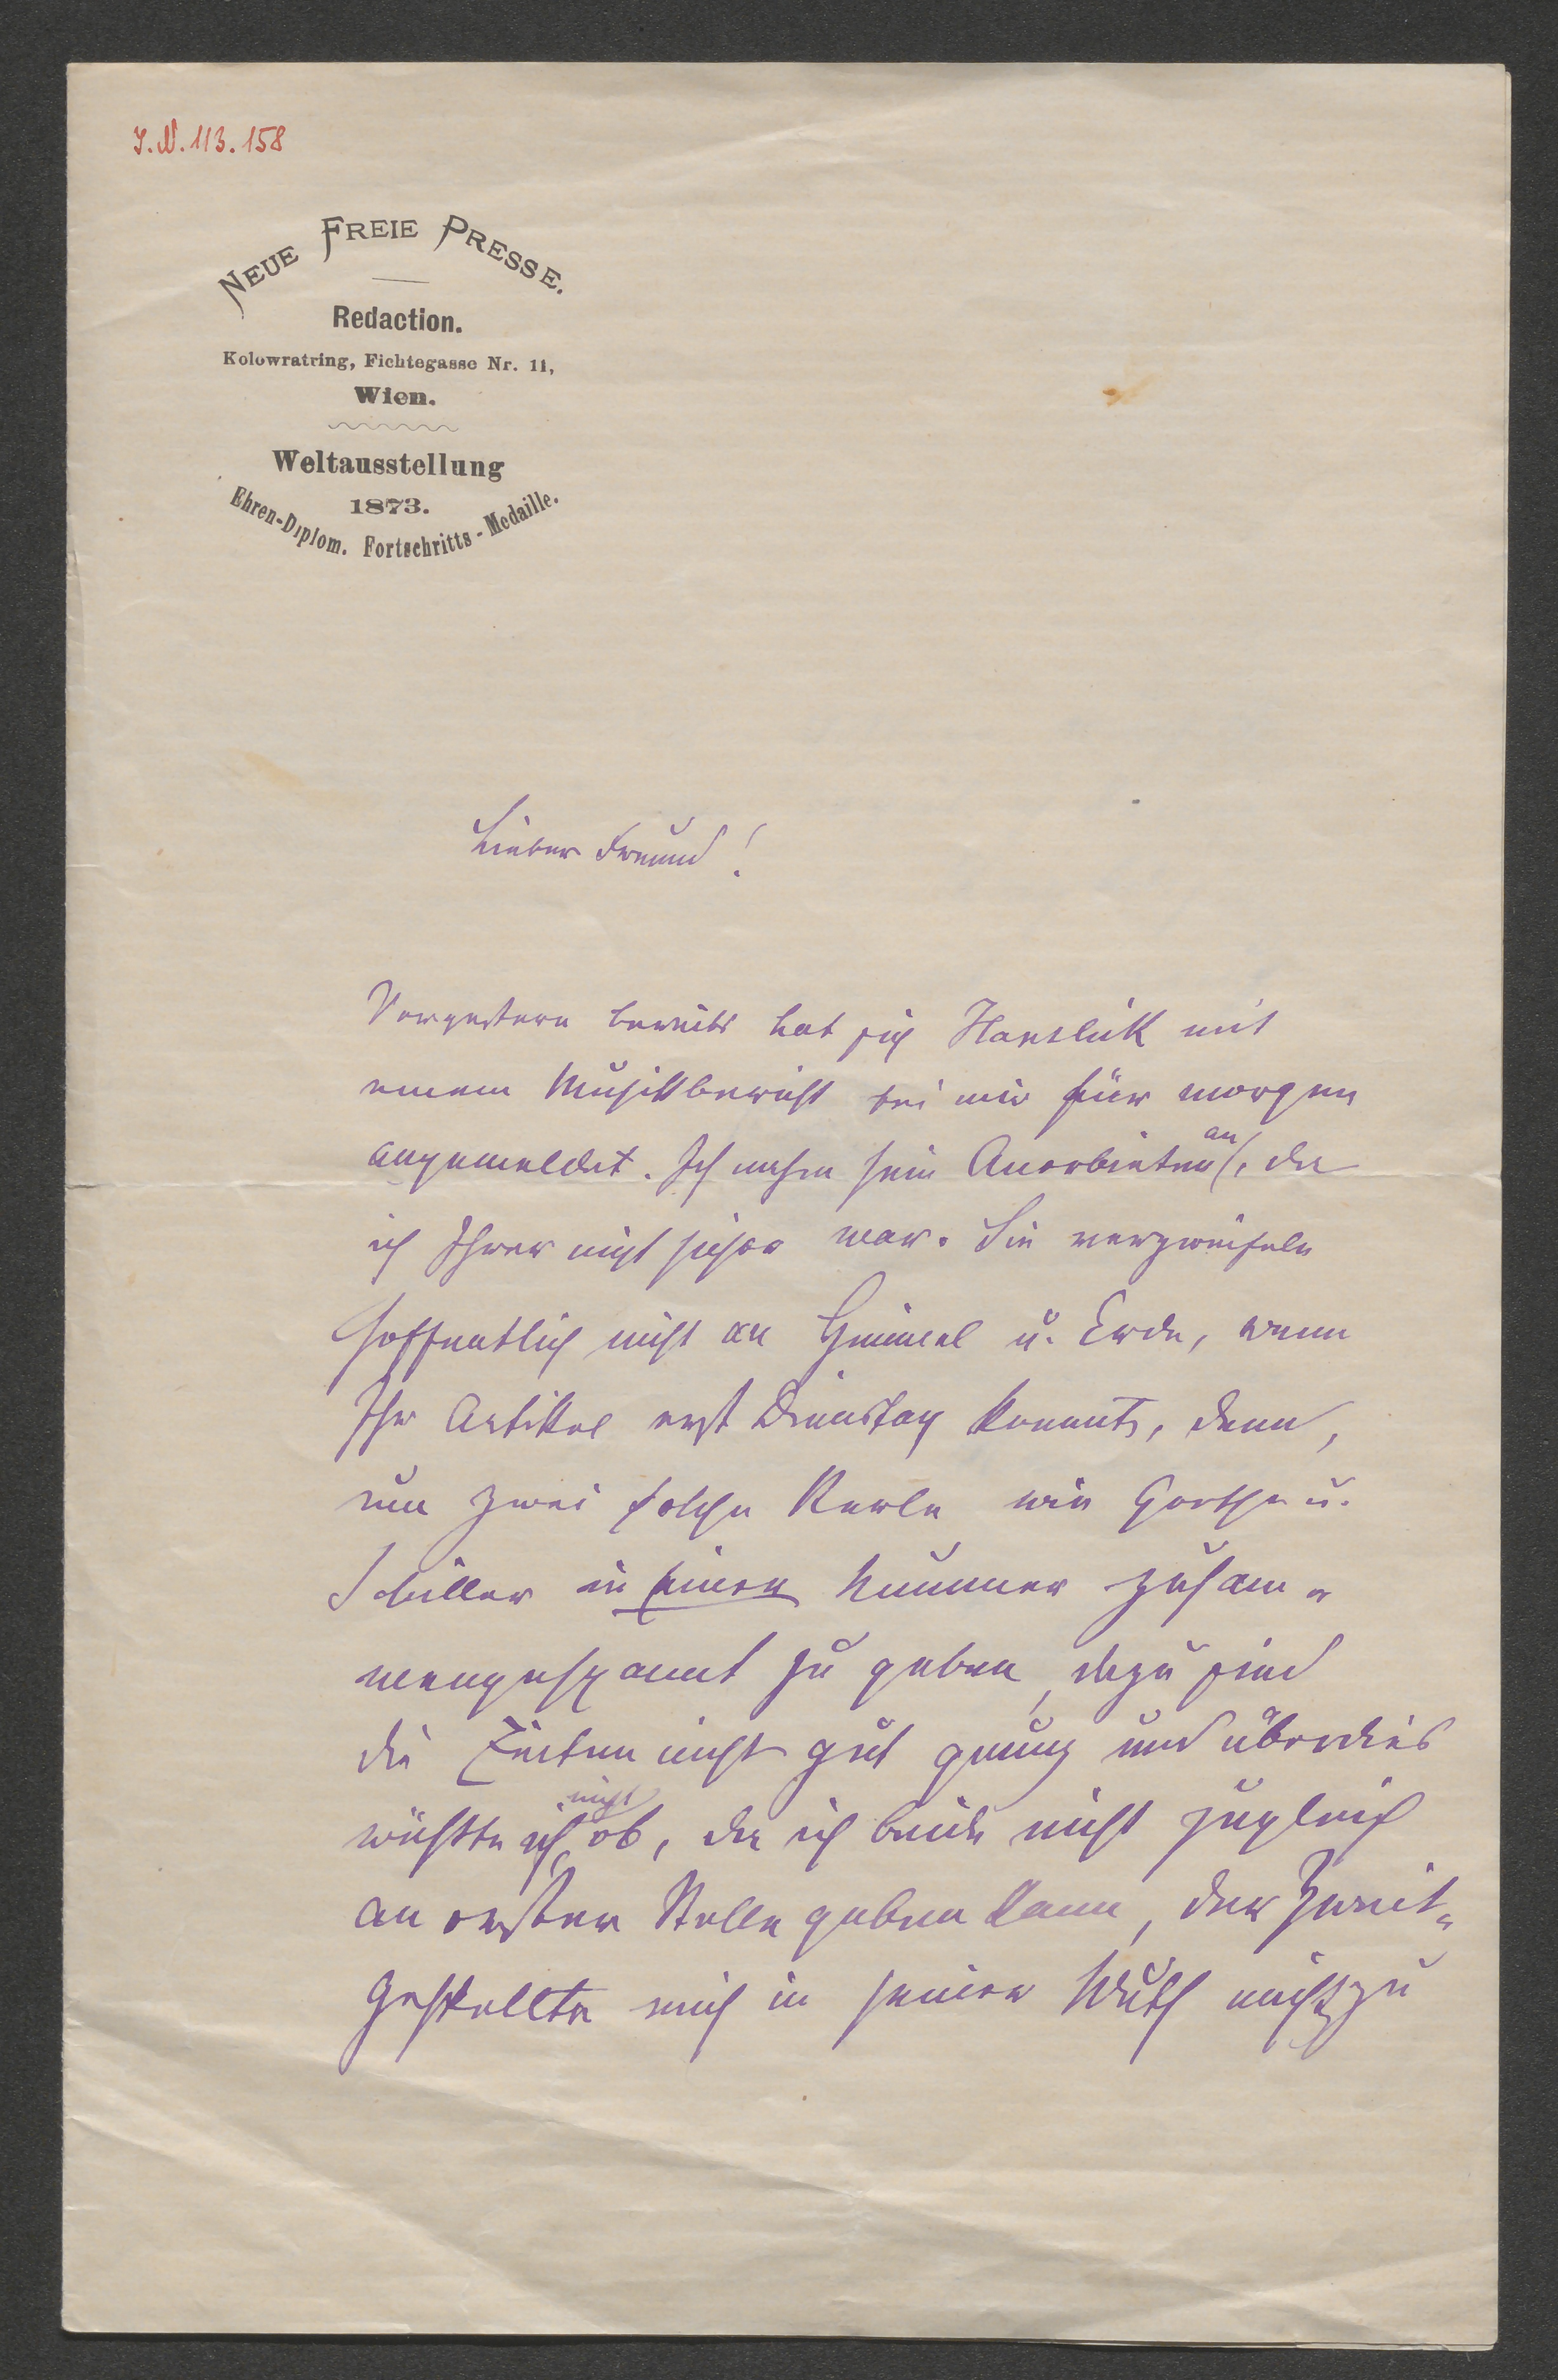 J.N. 113.158
NEUE FREIE PRESSE.
Redaction.
Kolowratring, Fichtegasse Nr. 11,
Wien.
Weltausstellung
1873.
Ehren-Diplom. Fortschritts-Medaille.
Lieber Freund!
Vorgestern bereits hat sich Hanslick mit
einem Musikbericht bei mir für morgen
angemeldet. Ich nahm sein Anerbieten an, da
ich Ihrer nicht sicher war. Sie verzweifeln
hoffentlich nicht an Himmel u. Erde, wenn
Ihr Artikel erst Dienstag kommt, denn,
um zwei solche Kerle wie Goethe u.
Schiller in einer Nummer zusam-
mengespannt zu geben, dazu sind
die Zeiten nicht gut genug und überdies
wüßte ich nicht ob, da ich beide nicht zugleich
an erster Stelle geben kann, der Zweit-
gestellte mich in seiner Wuth nicht zu